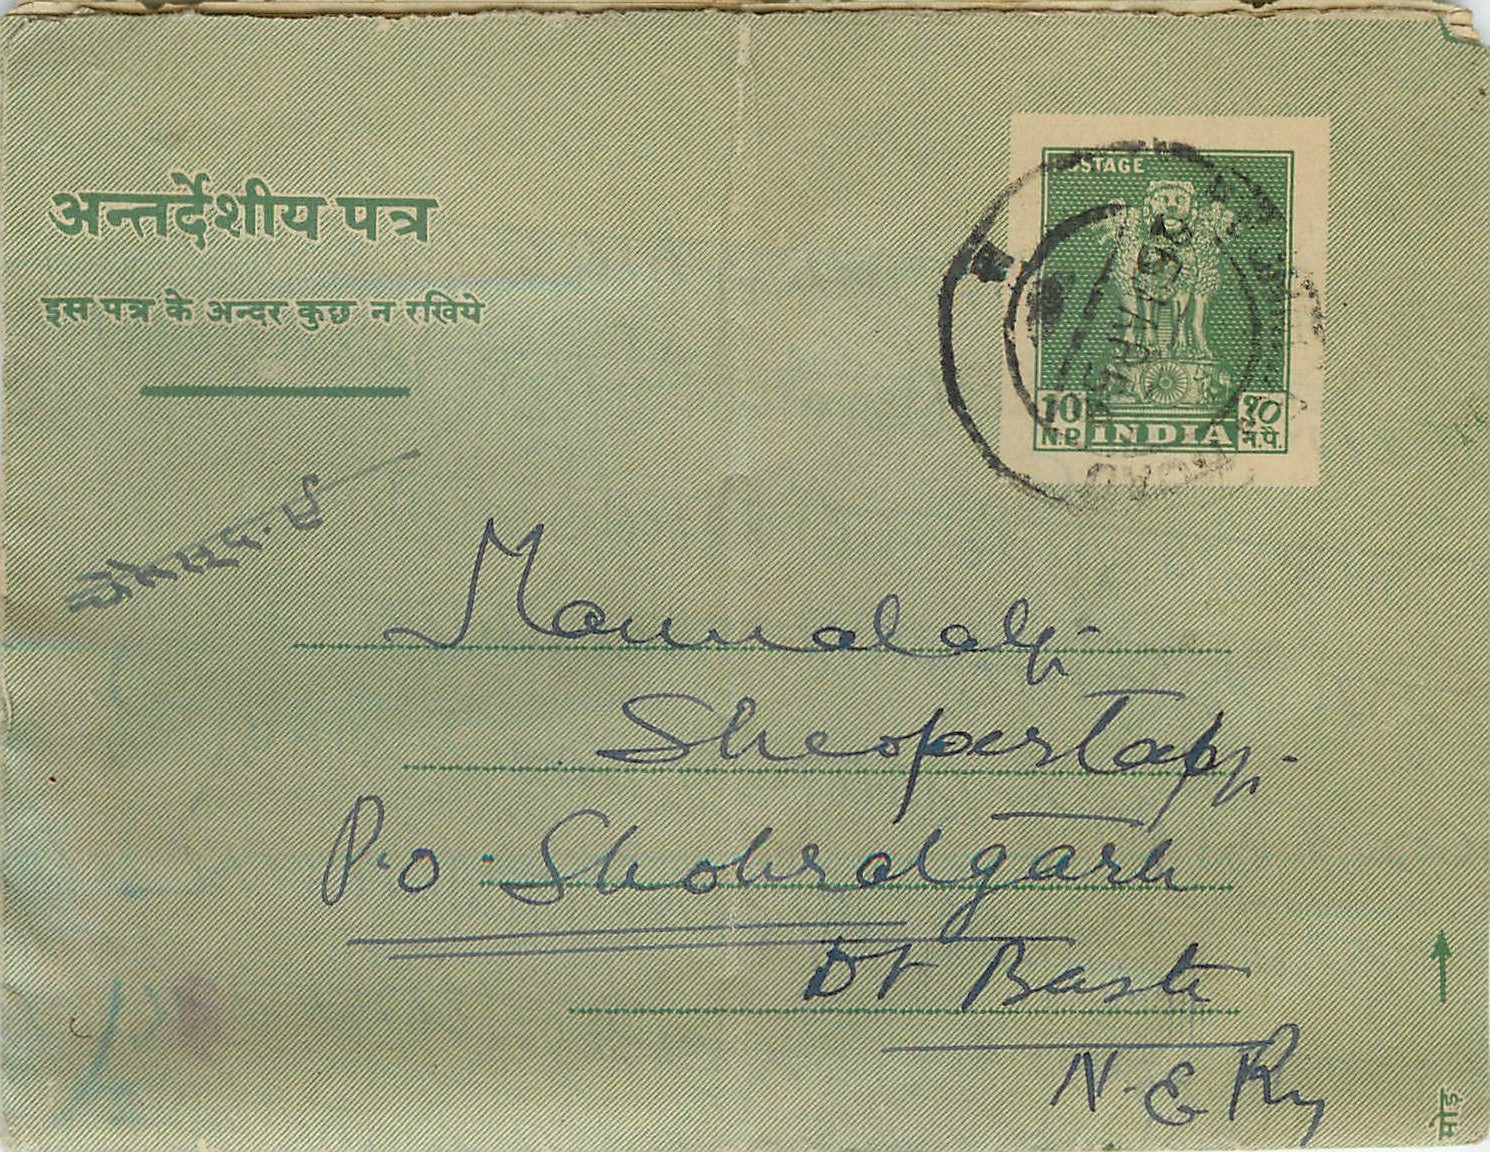 अन्तर्देशीय पत्र
इस पत्र के अन्दर कुछ न रखिये
POSTAGE
10 १०
N.P. INDIA न.पै.
Mannalalji
Sheopertapji
P.O. Shohratgarh
Dt Basti
N. E Ry
मोड़